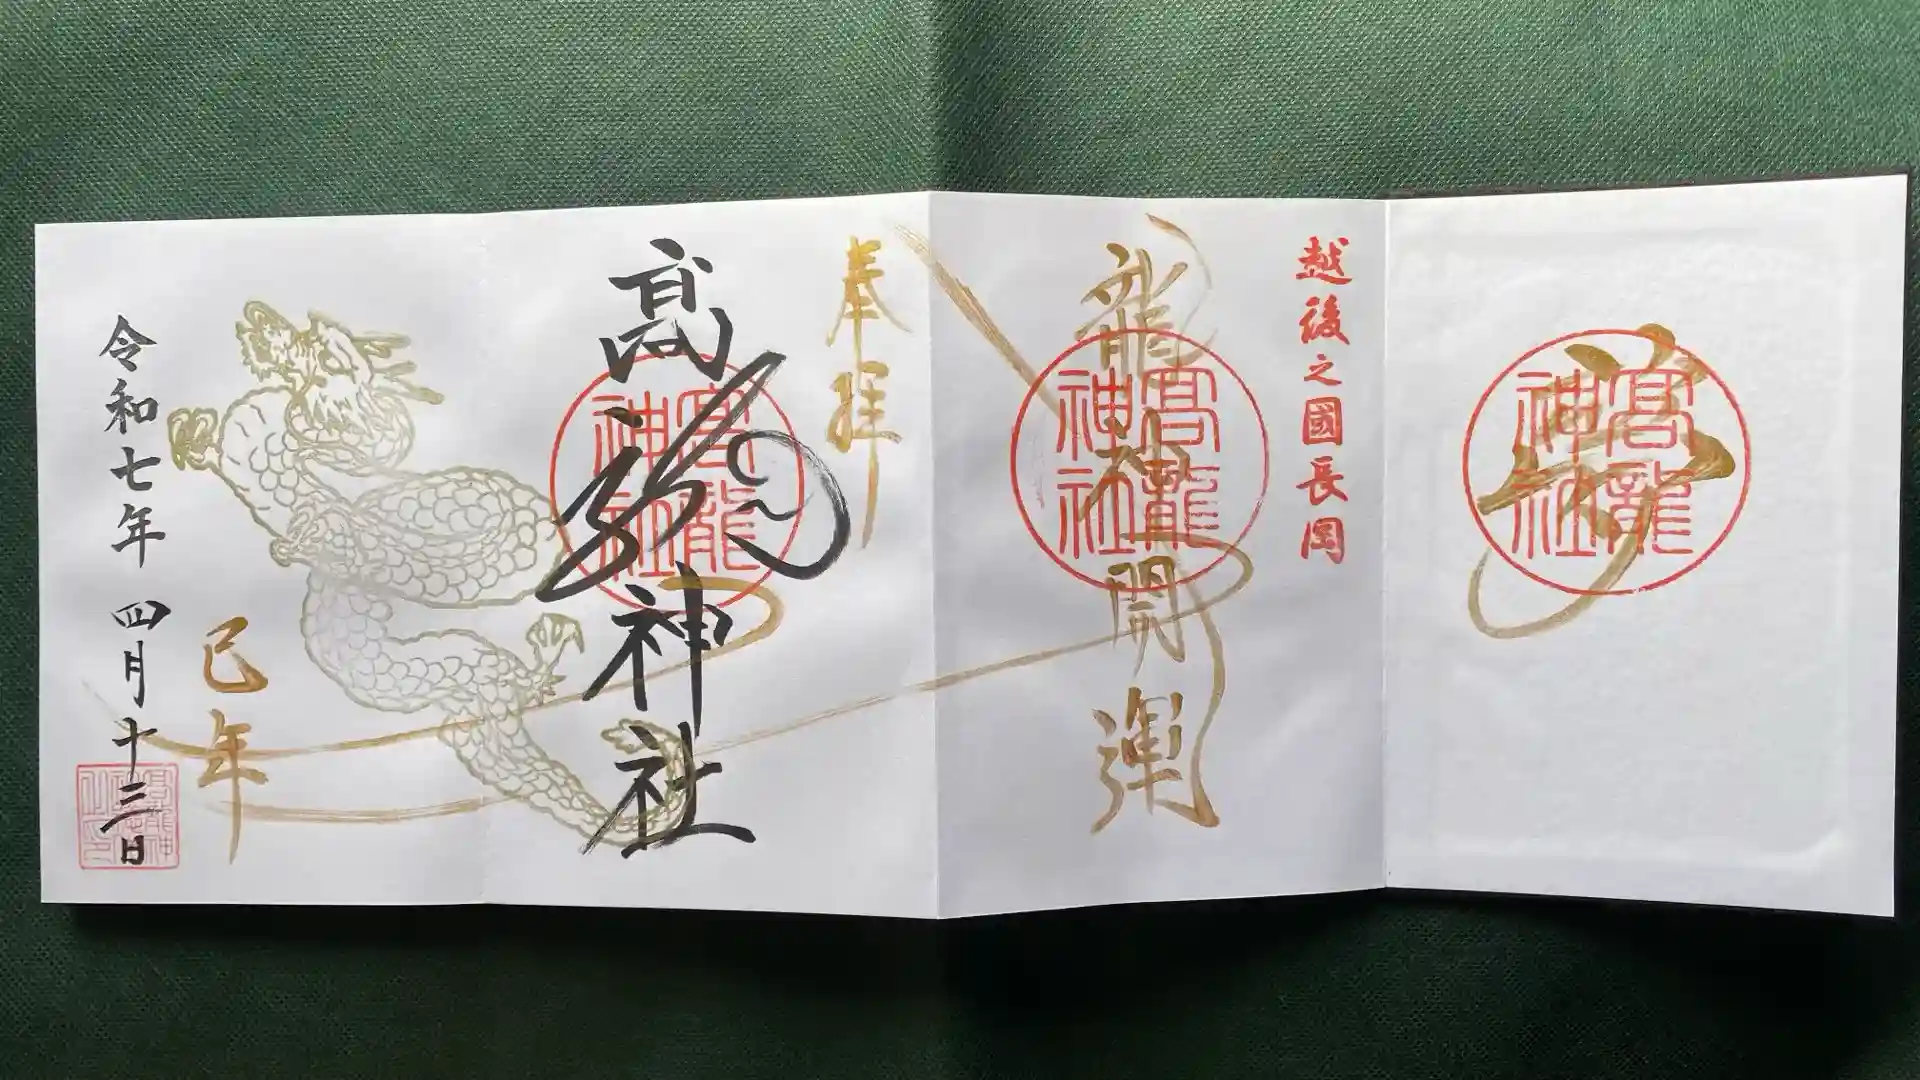 髙龍神社
越後之國長岡
龍神開運
髙龍神社
奉拝
髙龍神社
髙龍神社
巳年
令和七年 四月十三日